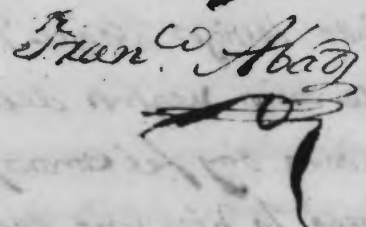 Fran.co Abad